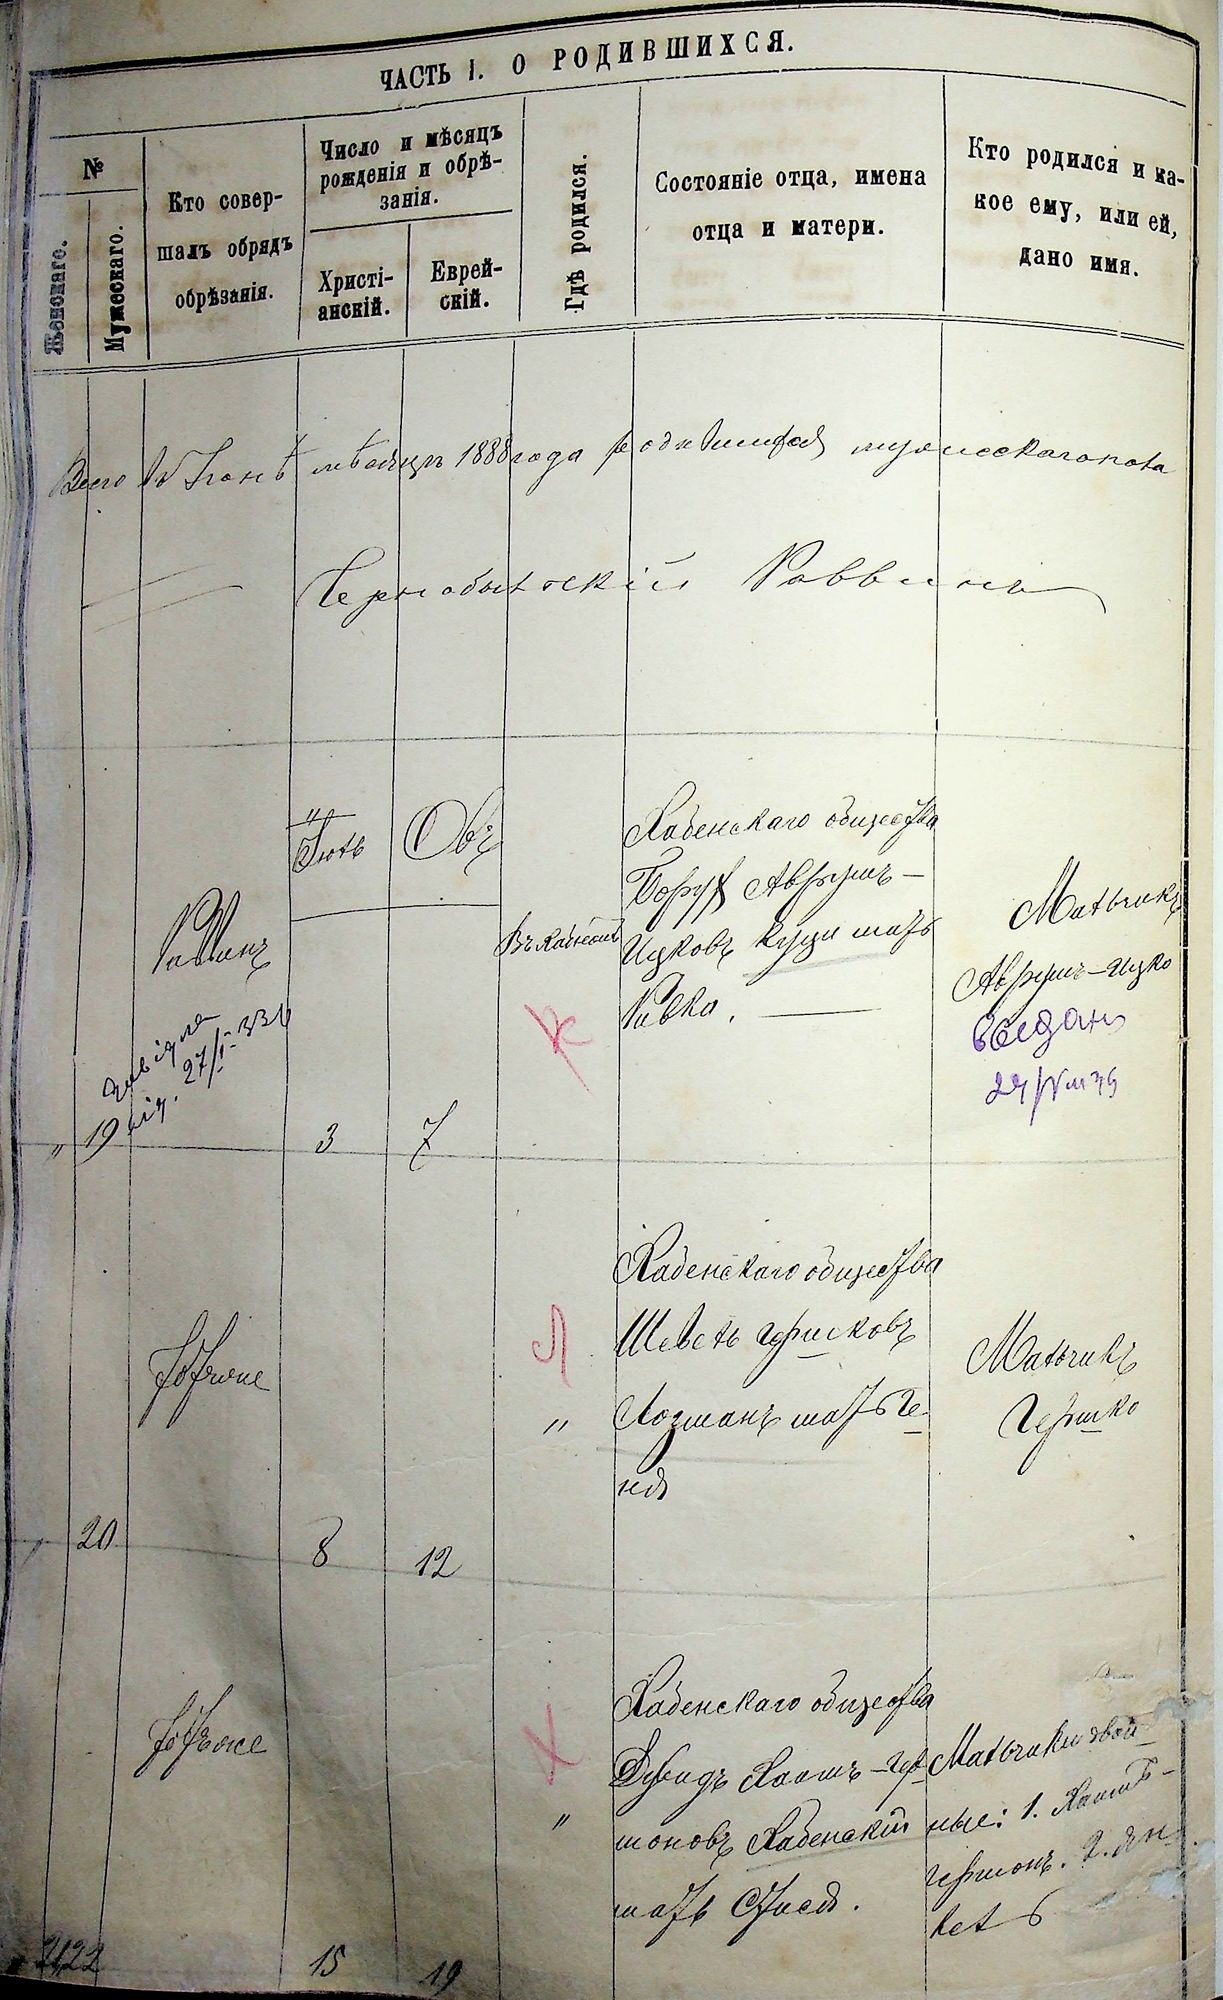 ЧАСТЬ I. О РОДИВШИХСЯ.
№
Женскаго.
Мужескаго.
Кто совер-
шалъ обрядъ
обрѣзанія.
Число и мѣсяцъ
рожденія и обрѣ-
занія.
Христі-
анскій.
Еврей-
скій.
Гдѣ родился.
Состояніе отца, имена
отца и матери.
Кто родился и ка-
кое ему, или ей,
дано имя.
Всего въ Іюнѣ мѣсяцѣ 1888 года родившихся мужескаго пола
Чернобыльскій Раввинъ
Раввинъ
" 19
27/I-33
Іюль
3
Овъ
7
Въ Кабеной
К
Хабенскаго общества
Борухъ Аврумъ-
Ицковъ Куци мать
Ривка.
Мальчикъ
Аврумъ-Ицко
29/VIII 39
20
Тотже
8
12
Л
"
Хабенскаго общества
Шевель Гершковъ
Лозманъ мать Ге-
ня
Мальчикъ
Гершко
22
Тотже
15
19
Х
"
Хабенскаго общества
Дувидъ Хаимъ-Гер-
шоновъ Хабенскій
мать Стися.
Мальчики двой-
ные: 1. Хаимъ-
Гершонъ. 2. Ян-
кель